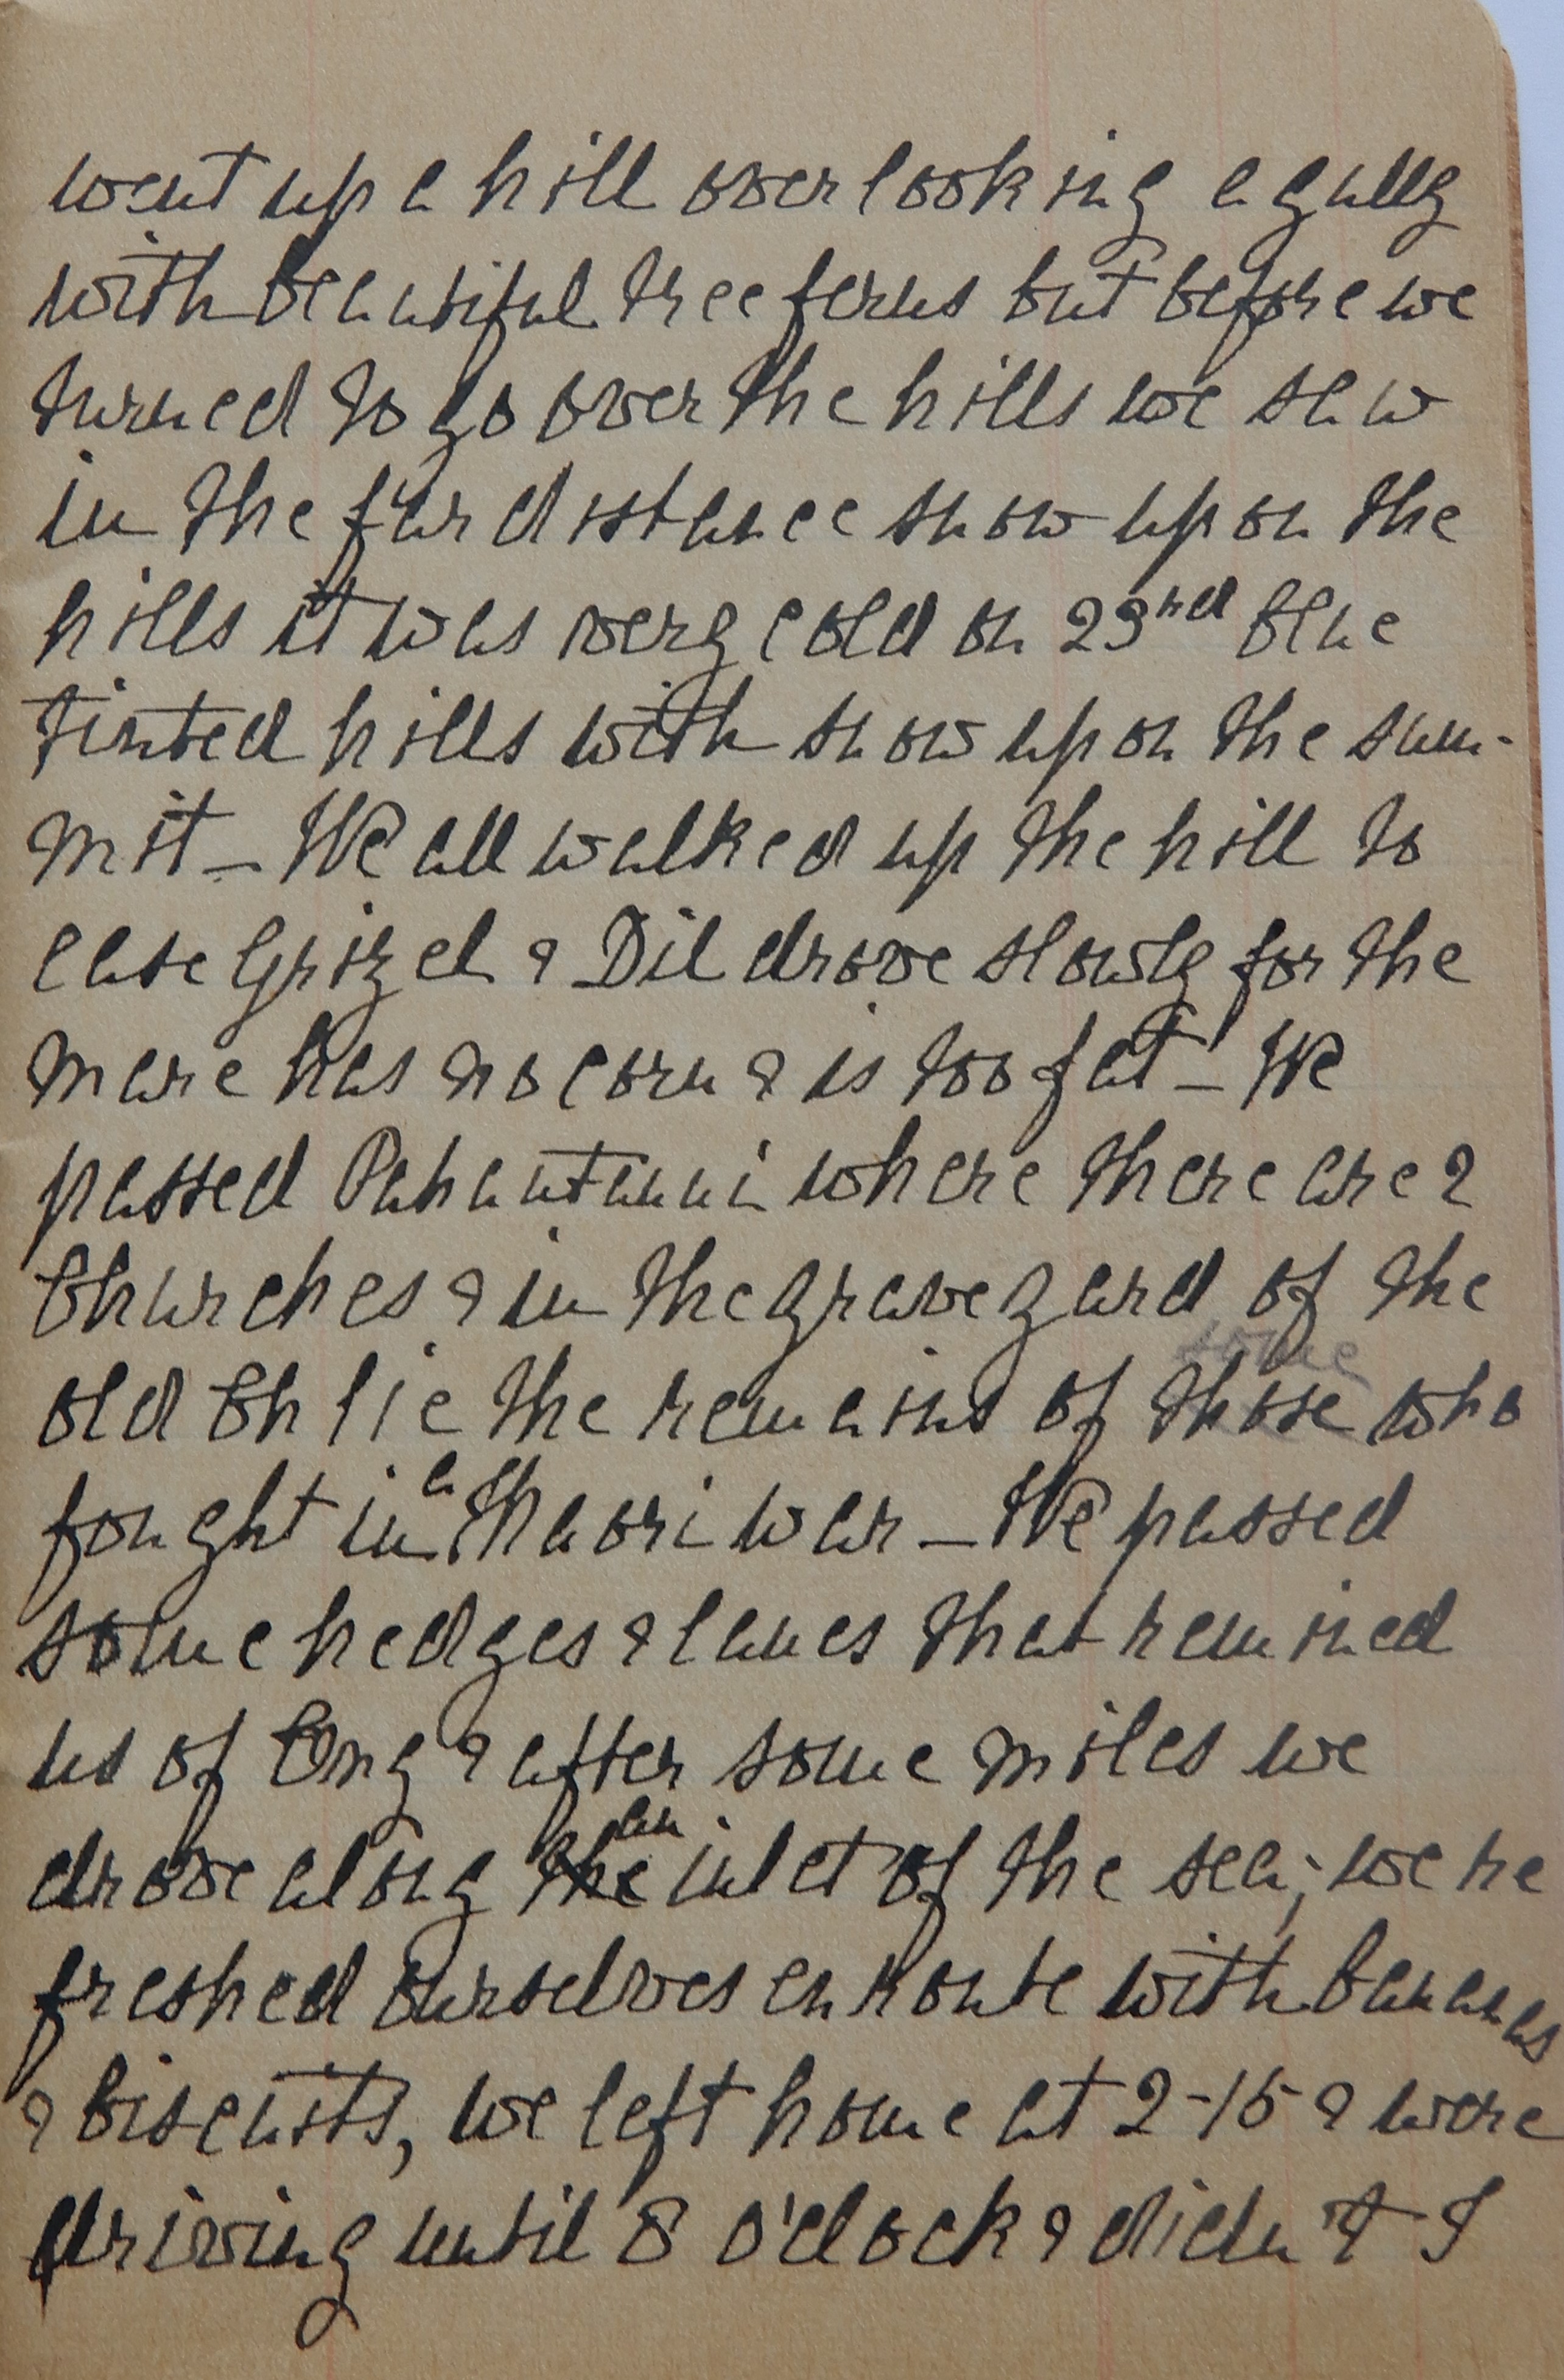 went up a hill overlooking a gully
with beautiful tree ferns but before we
turned to go over the hills we saw
in the far distance snow upon the
hills it was very cold on 23rd blue
tinted hills with snow upon the sum-
mit – We all walked up the hill to
ease Grizel & Dil drove slowly for the
mare has no corn & is too fat – We
passed Pahautanui where there are 2
Churches & in the graveyard of the
some
old Ch lie the remains of those who
fought in a Maori war – We passed
some hedges & lanes that remined
us of Eng & after some miles we
an
drove along the inlet of the sea; we re
freshed ourselves en route with bananas
& biscuits, we left home at 2-15 & were
driving until 8 o'clock & didn't I